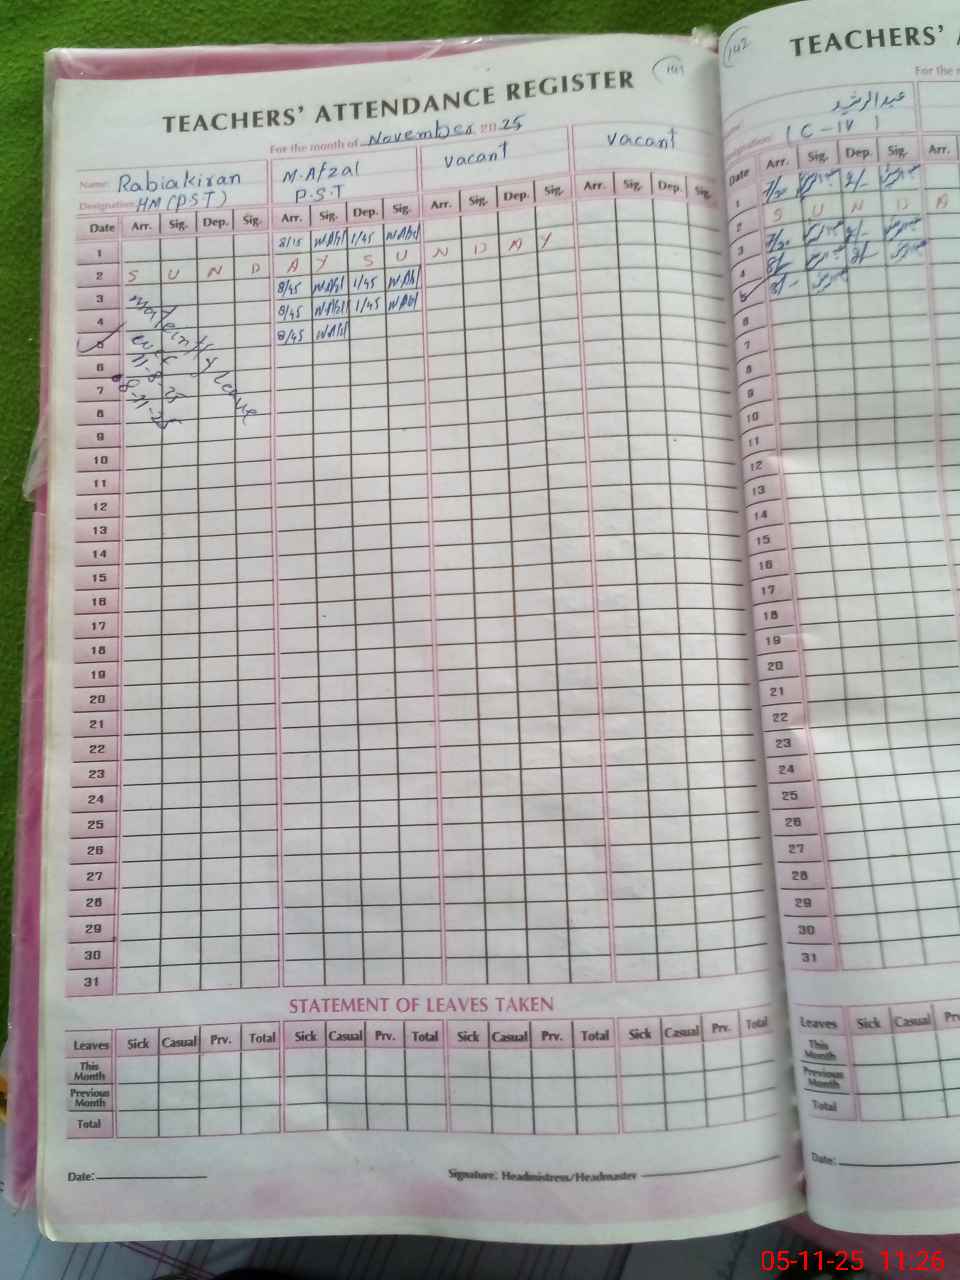 141
TEACHERS' ATTENDANCE REGISTER
For the month of November 2025
Name: Rabiakiran M. Afzal vacant vacant
Designation: HM (PST) P.S.T
Date Arr. Sig. Dep. Sig. Arr. Sig. Dep. Sig. Arr. Sig. Dep. Sig. Arr. Sig. Dep. Sig.
1 8/15 1/45
2 S U N D A Y S U N D A Y
3 8/45 1/45
4 8/45 1/45
5 8/45
6
7
8
9
10
11
12
13
14
15
16
17
18
19
20
21
22
23
24
25
26
27
28
29
30
31
leave
11-8-25
8-11-25
STATEMENT OF LEAVES TAKEN
Leaves Sick Casual Prv. Total Sick Casual Prv. Total Sick Casual Prv. Total Sick Casual Prv. Total
This Month
Previous Month
Total
Date:
Signature: Headmistress/Headmaster
142
TEACHERS'
For the
عبدالرشید
(C-IV)
Date Arr. Sig. Dep. Sig. Arr.
1
2 S U N D A
3
4
5
6
7
8
9
10
11
12
13
14
15
16
17
18
19
20
21
22
23
24
25
26
27
28
29
30
31
Leaves Sick Casual
This Month
Previous Month
Total
Date:
05-11-25 11:26